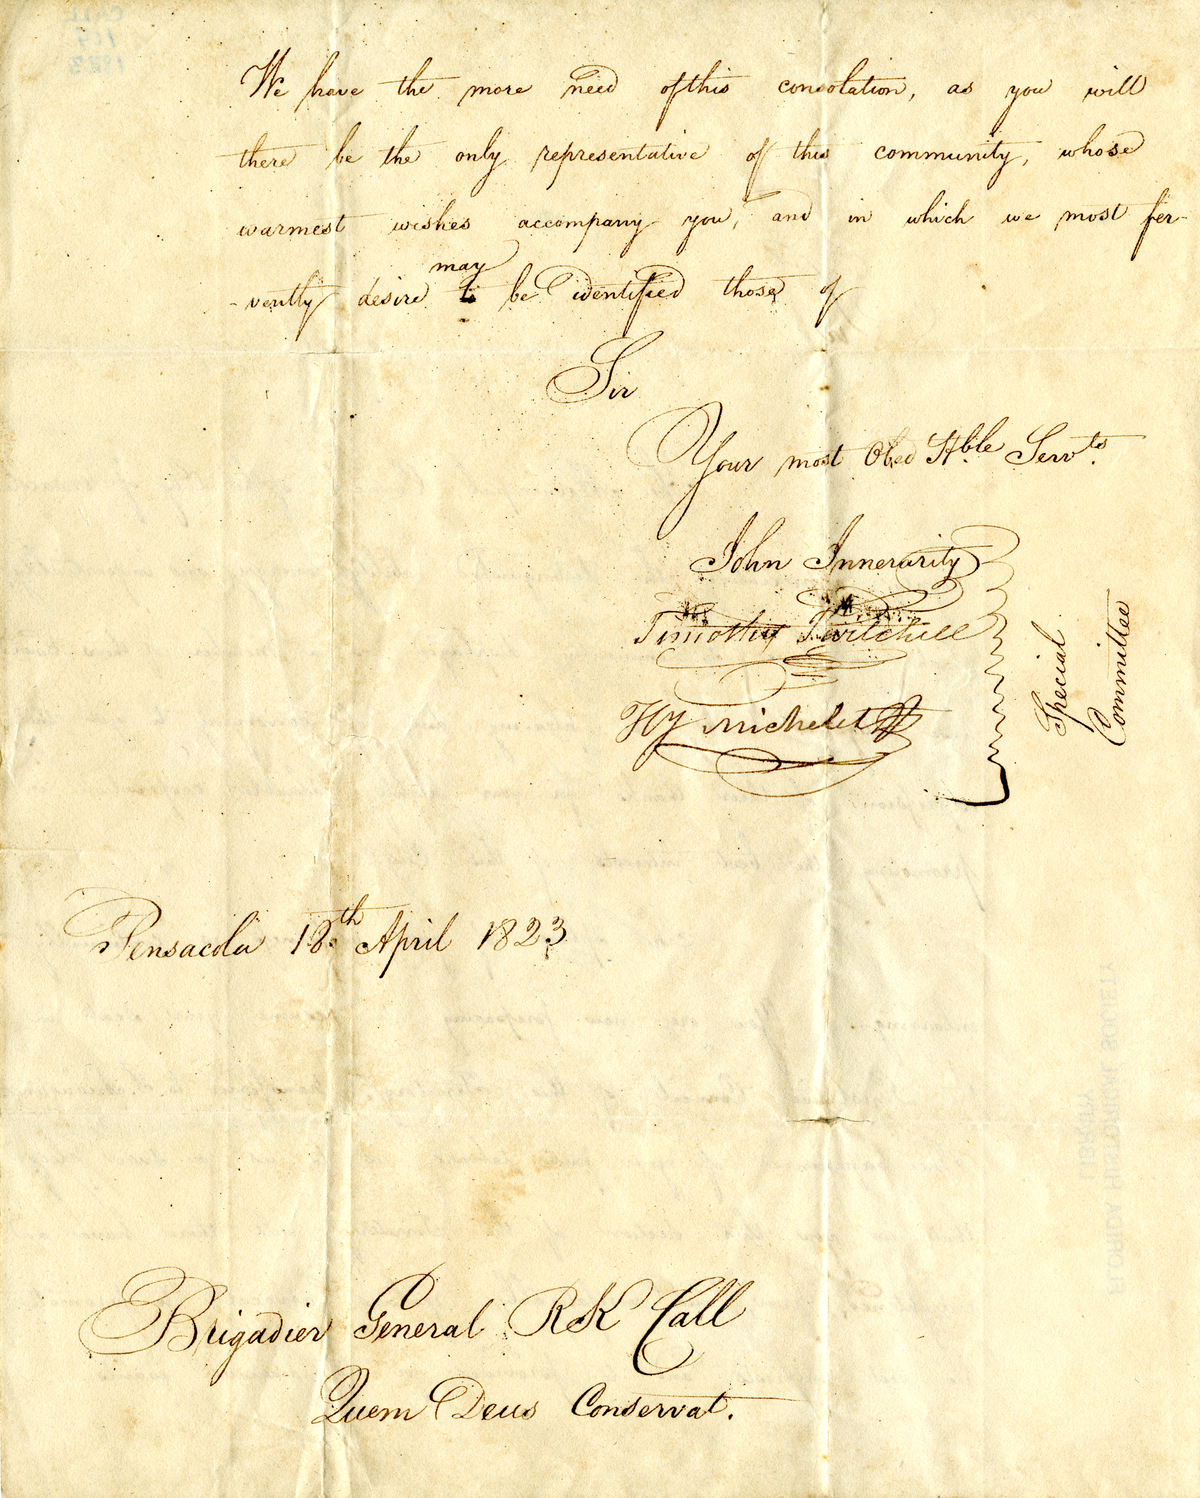 We have the more need of this consolation, as you will
there be the only representative of this community, whose
warmest wishes accompany you, and in which we most fer-
-vently desire may be identified those of
Sir
Your most Obed Hble Servts.
John Innerarity
Timothy Twitchell
Hy Michelet
Special
Committee
Pensacola 18th April 1823
Brigadier General RK Call
Quem Deus Conservat.